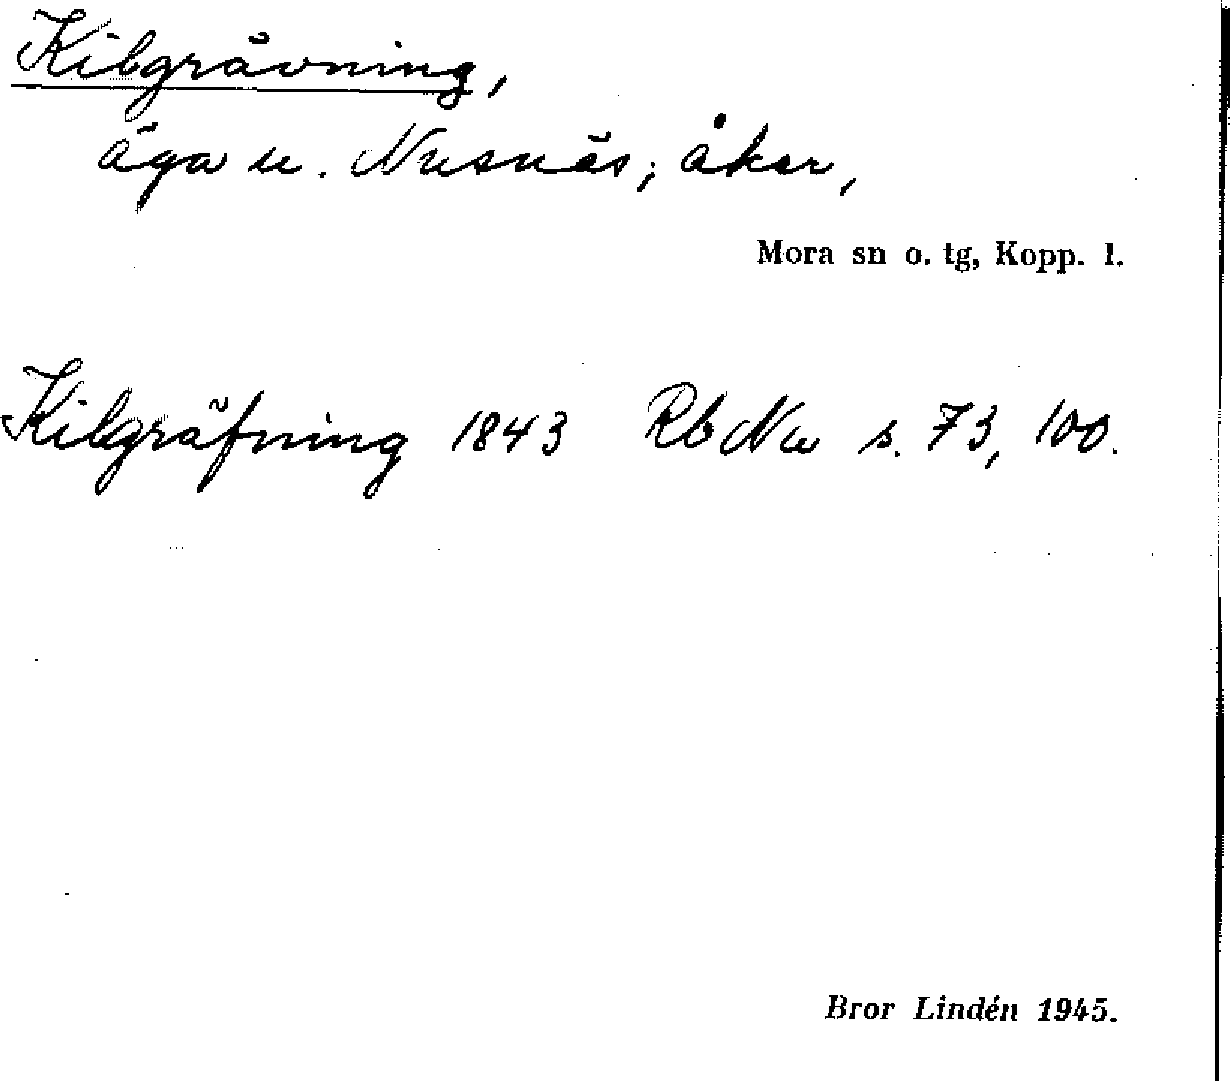 Kilgrävning,
äga u. Nusnäs; åker,
Mora sn o. tg, Kopp. l.
Kilgräfning 1843 Rb Nu s. 73, 100.
Bror Lindén 1945.